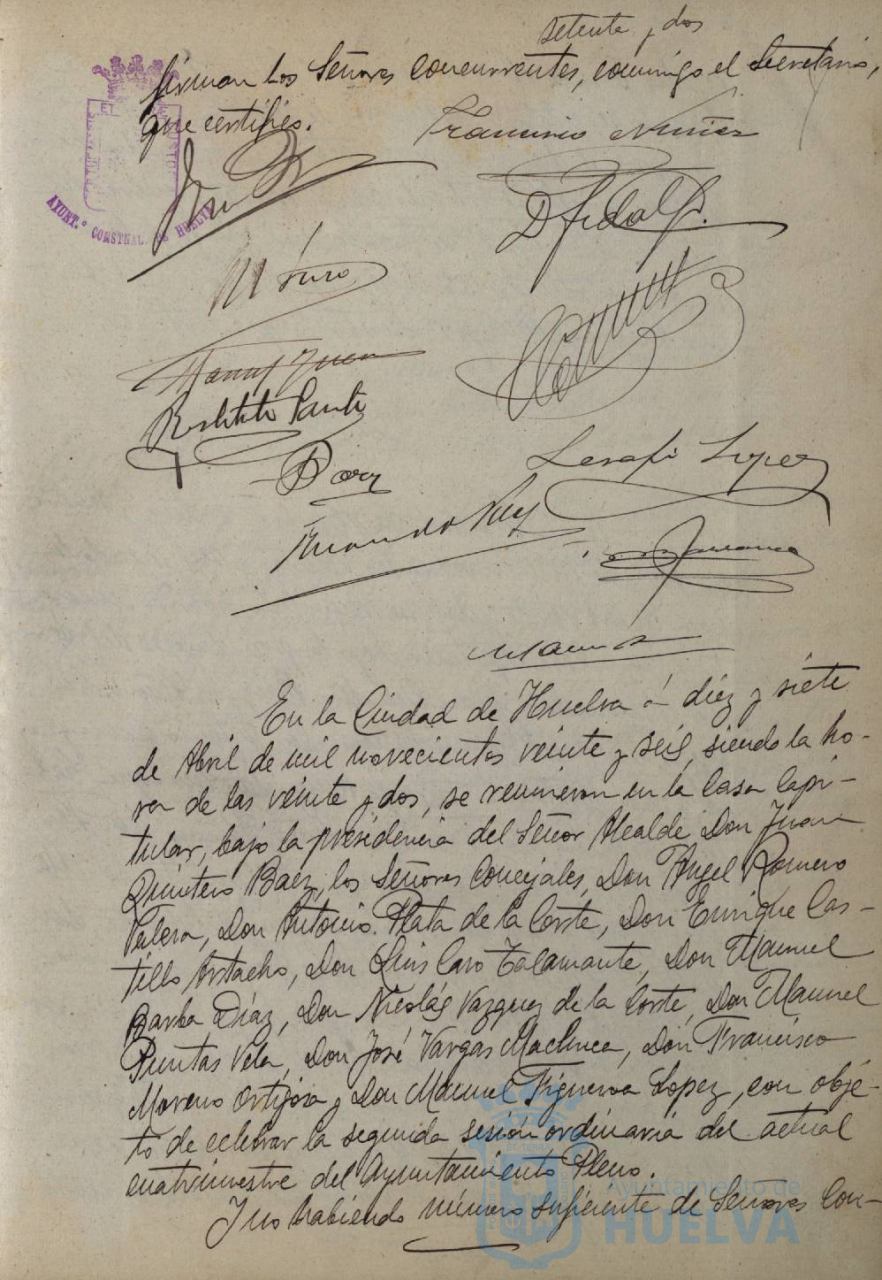 setenta y dos
firman los Señores concurrentes, conmigo el Secretario,
que certifico.
Francisco Nuñez
AYUNT.º CONSTNAL. DE HUELVA
D fidalgo.
Restituto Santos
Serafin Lopez
Fernando Rey
En la Ciudad de Huelva á diez y siete
de Abril de mil novecientos veinte y seis, siendo la ho-
ra de las veinte y dos, se reunieron en la Casa Capi-
tular, bajo la presidencia del Señor Alcalde Don Juan
Quintero Baez, los Señores Concejales, Don Angel Romero
Valera, Don Antonio Plata de la Corte, Don Enrique Cas-
tillo Artacho, Don Luis Caro Talamante, Don Manuel
Barba Díaz, Don Nicolás Vazquez de la Corte, Don Manuel
Puntas Vela, Don José Vargas Machuca, Don Francisco
Moreno Ortijosa y Don Manuel Figueroa Lopez, con obje-
to de celebrar la segunda sesión ordinaria del actual
cuatrimestre del Ayuntamiento Pleno.
Y no habiendo número suficiente de Señores Con-
Ayuntamiento de
HUELVA